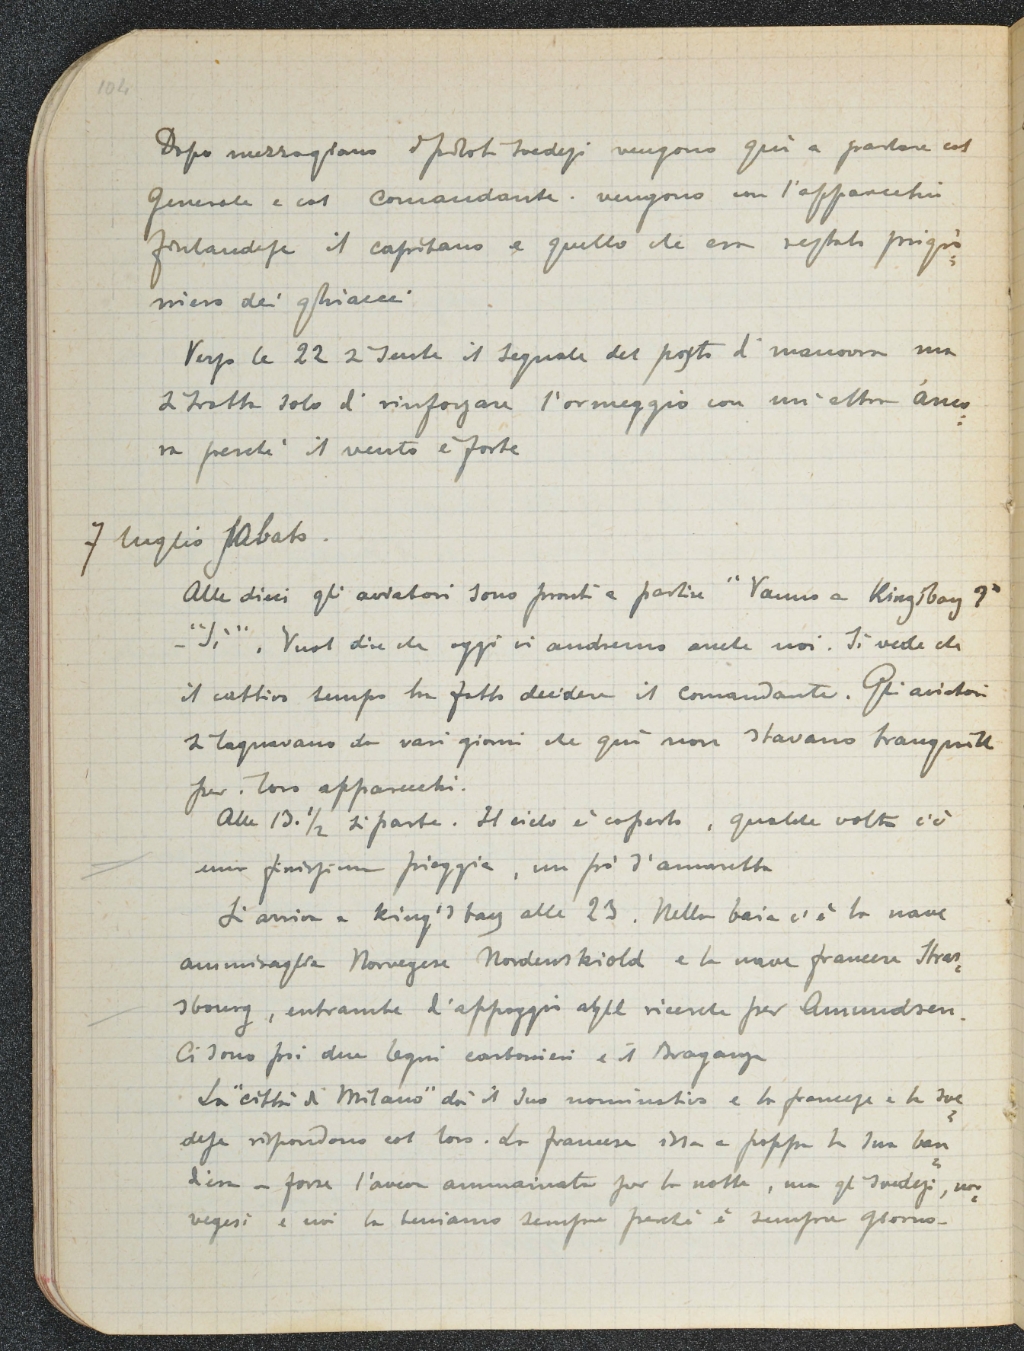 104
Dopo mezzogiorno i piloti svedesi vengono quì a parlare col
Generale e col Comandante. vengono con l'apparecchio
finlandese il capitano e quello che era restato prigio=
niero dei ghiacci
Verso le 22 si sente il segnale del posto di manovra ma
si tratta solo di rinforzare l'ormeggio con un'altra ánco=
ra perchè il vento è forte
7 luglio sabato.
Alle dieci gli aviatori sono pronti a partire "Vanno a King'sbay?"
- "Si". Vuol dire che oggi vi andremo anche noi. Si vede che
il cattivo tempo ha fatto decidere il comandante. Gli aviatori
si lagnavano da vari giorni che quì non stavano tranquilli
per i loro apparecchi.
Alle 13.1/2 si parte. Il cielo è coperto, qualche volta c'è
una finissima pioggia, un pò d'amaretta
Si arriva a King's bay alle 23. Nella baia c'è la nave
ammiraglia Norvegese Nordenskiold e la nave francese Stras=
sbourg, entrambe d'appoggio alle ricerche per Amundsen.
Ci sono poi due legni carbonieri e il Braganza
La "città di Milano" dà il suo nominativo e la francese e la sve=
dese rispondono col loro. La francese issa a poppa la sua ban=
diera - forse l'aveva ammainata per la notte, ma gli svedesi, nor=
vegesi e noi la teniamo sempre perchè è sempre giorno-